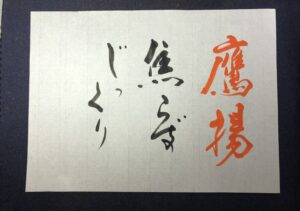 鷹揚
焦らず
じっくり